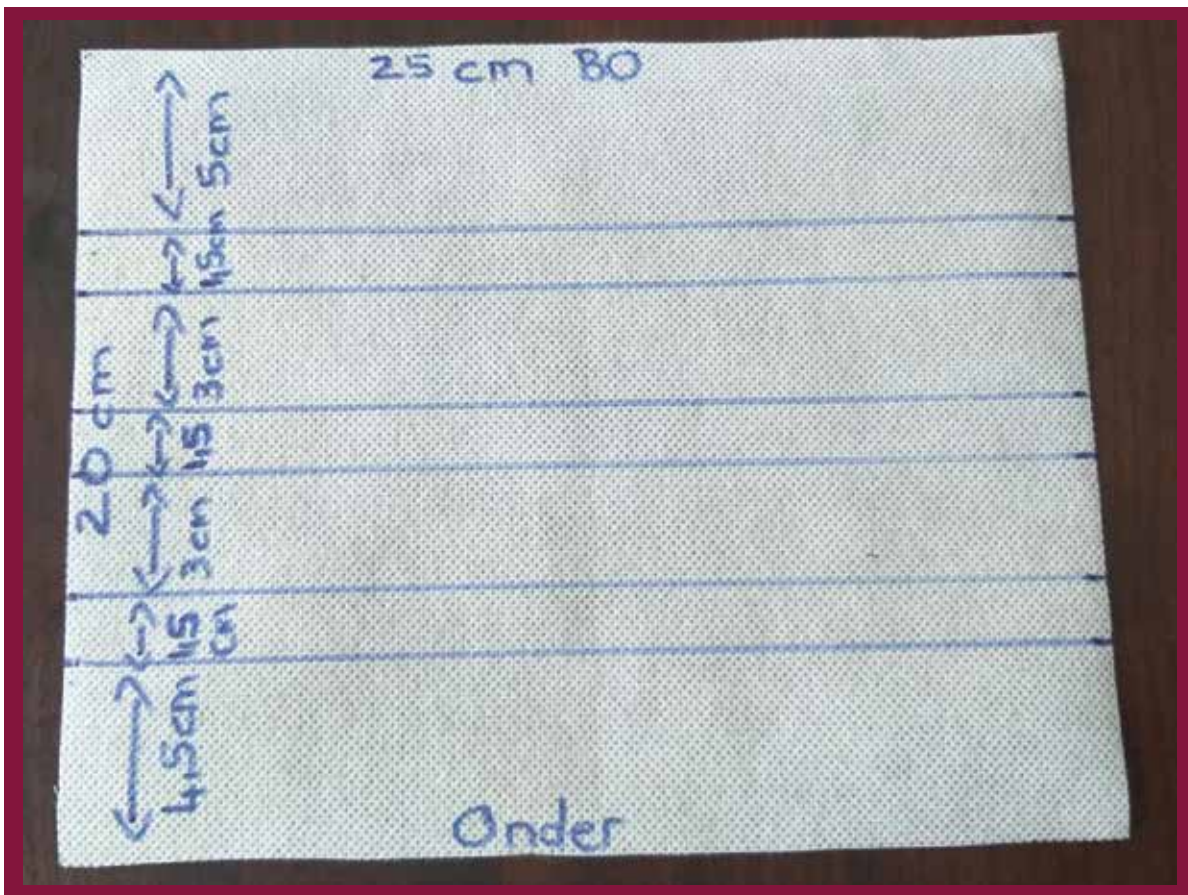 25 cm BO
5cm
1,5cm
3cm
1,5
3cm
1,5
cm
4,5cm
20 cm
Onder